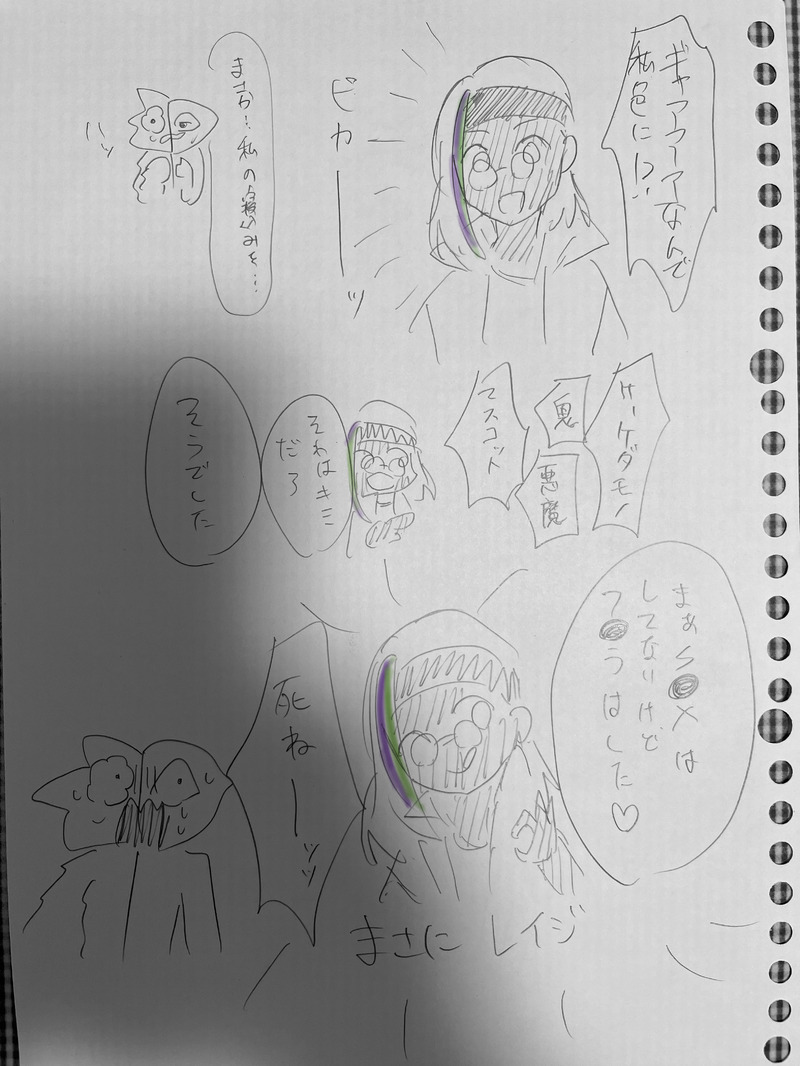 ギャアアーアなんで
私色に!?
ピカーーッ
まさか…私の寝込みを…
ハッ
ケダモノ
鬼
悪魔
マスコット
それはキミ
だろ
そうでした
まぁS●Xは
してないけど
フ●うはした♡
死ねーーッッ
まさにレイジ